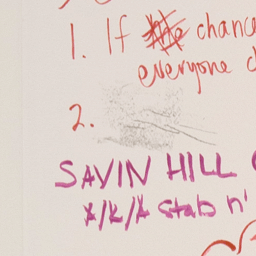 1. If chanc
everyone
2.
SAVIN HILL
A/K/A Stab n'